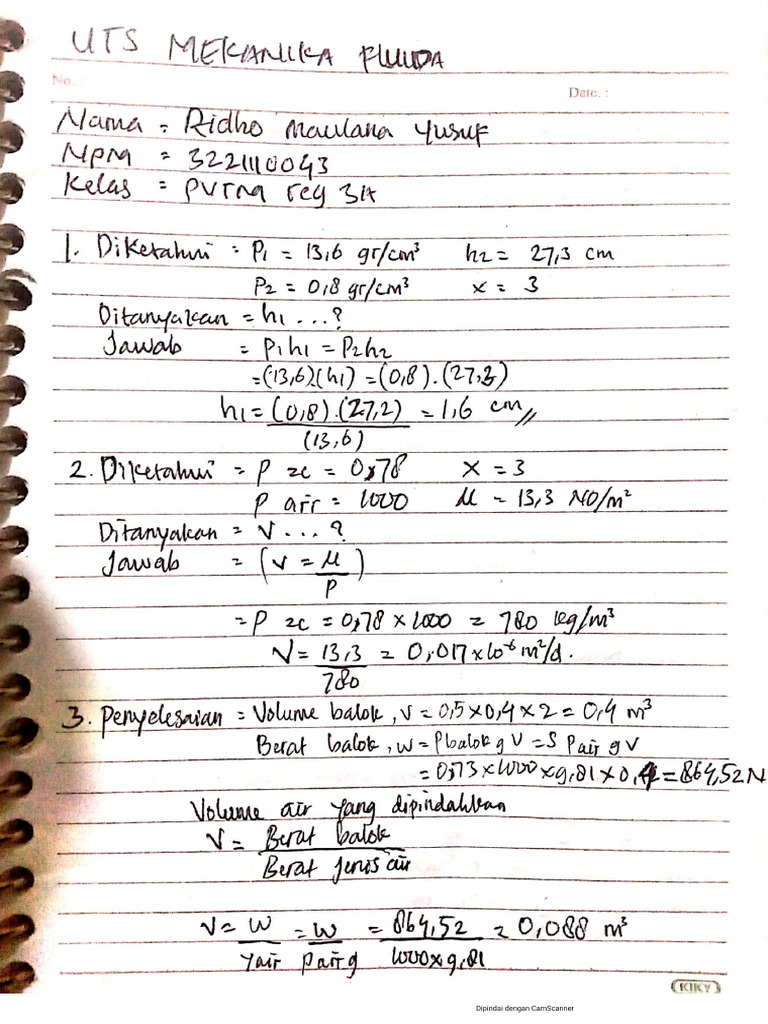 UTS MEKANIKA FLUIDA
No. :
Date. :
Nama = Ridho Maulana Yusuf
NPM = 3221110043
Kelas = PVRNA reg 3A
1. Diketahui = P1 = 13,6 gr/cm³ h2 = 27,3 cm
P2 = 0,8 gr/cm³ x = 3
Ditanyakan = h1 ...?
Jawab = P1h1 = P2h2
=(13,6)(h1) = (0,8).(27,3)
h1 = (0,8).(27,2) = 1,6 cm //
(13,6)
2. Diketahui = P zc = 0,78 x = 3
P air = 1000 μ = 13,3 ND/m²
Ditanyakan = V ...?
Jawab = (V = μ
P)
= P zc = 0,78 x 1000 = 780 kg/m³
V = 13,3 = 0,017 x 10⁻⁶ m²/d.
780
3. Penyelesaian = Volume balok, V = 0,5 x 0,4 x 2 = 0,4 m³
Berat balok, W = P balok g V = S P air g V
= 0,73 x 1000 x 9,81 x 0, = 864,52 N
Volume air yang dipindahkan
V = Berat balok
Berat jenis air
V = W = W = 864,52 = 0,088 m³
γair Pair g 1000 x 9,81
KIKY
Dipindai dengan CamScanner